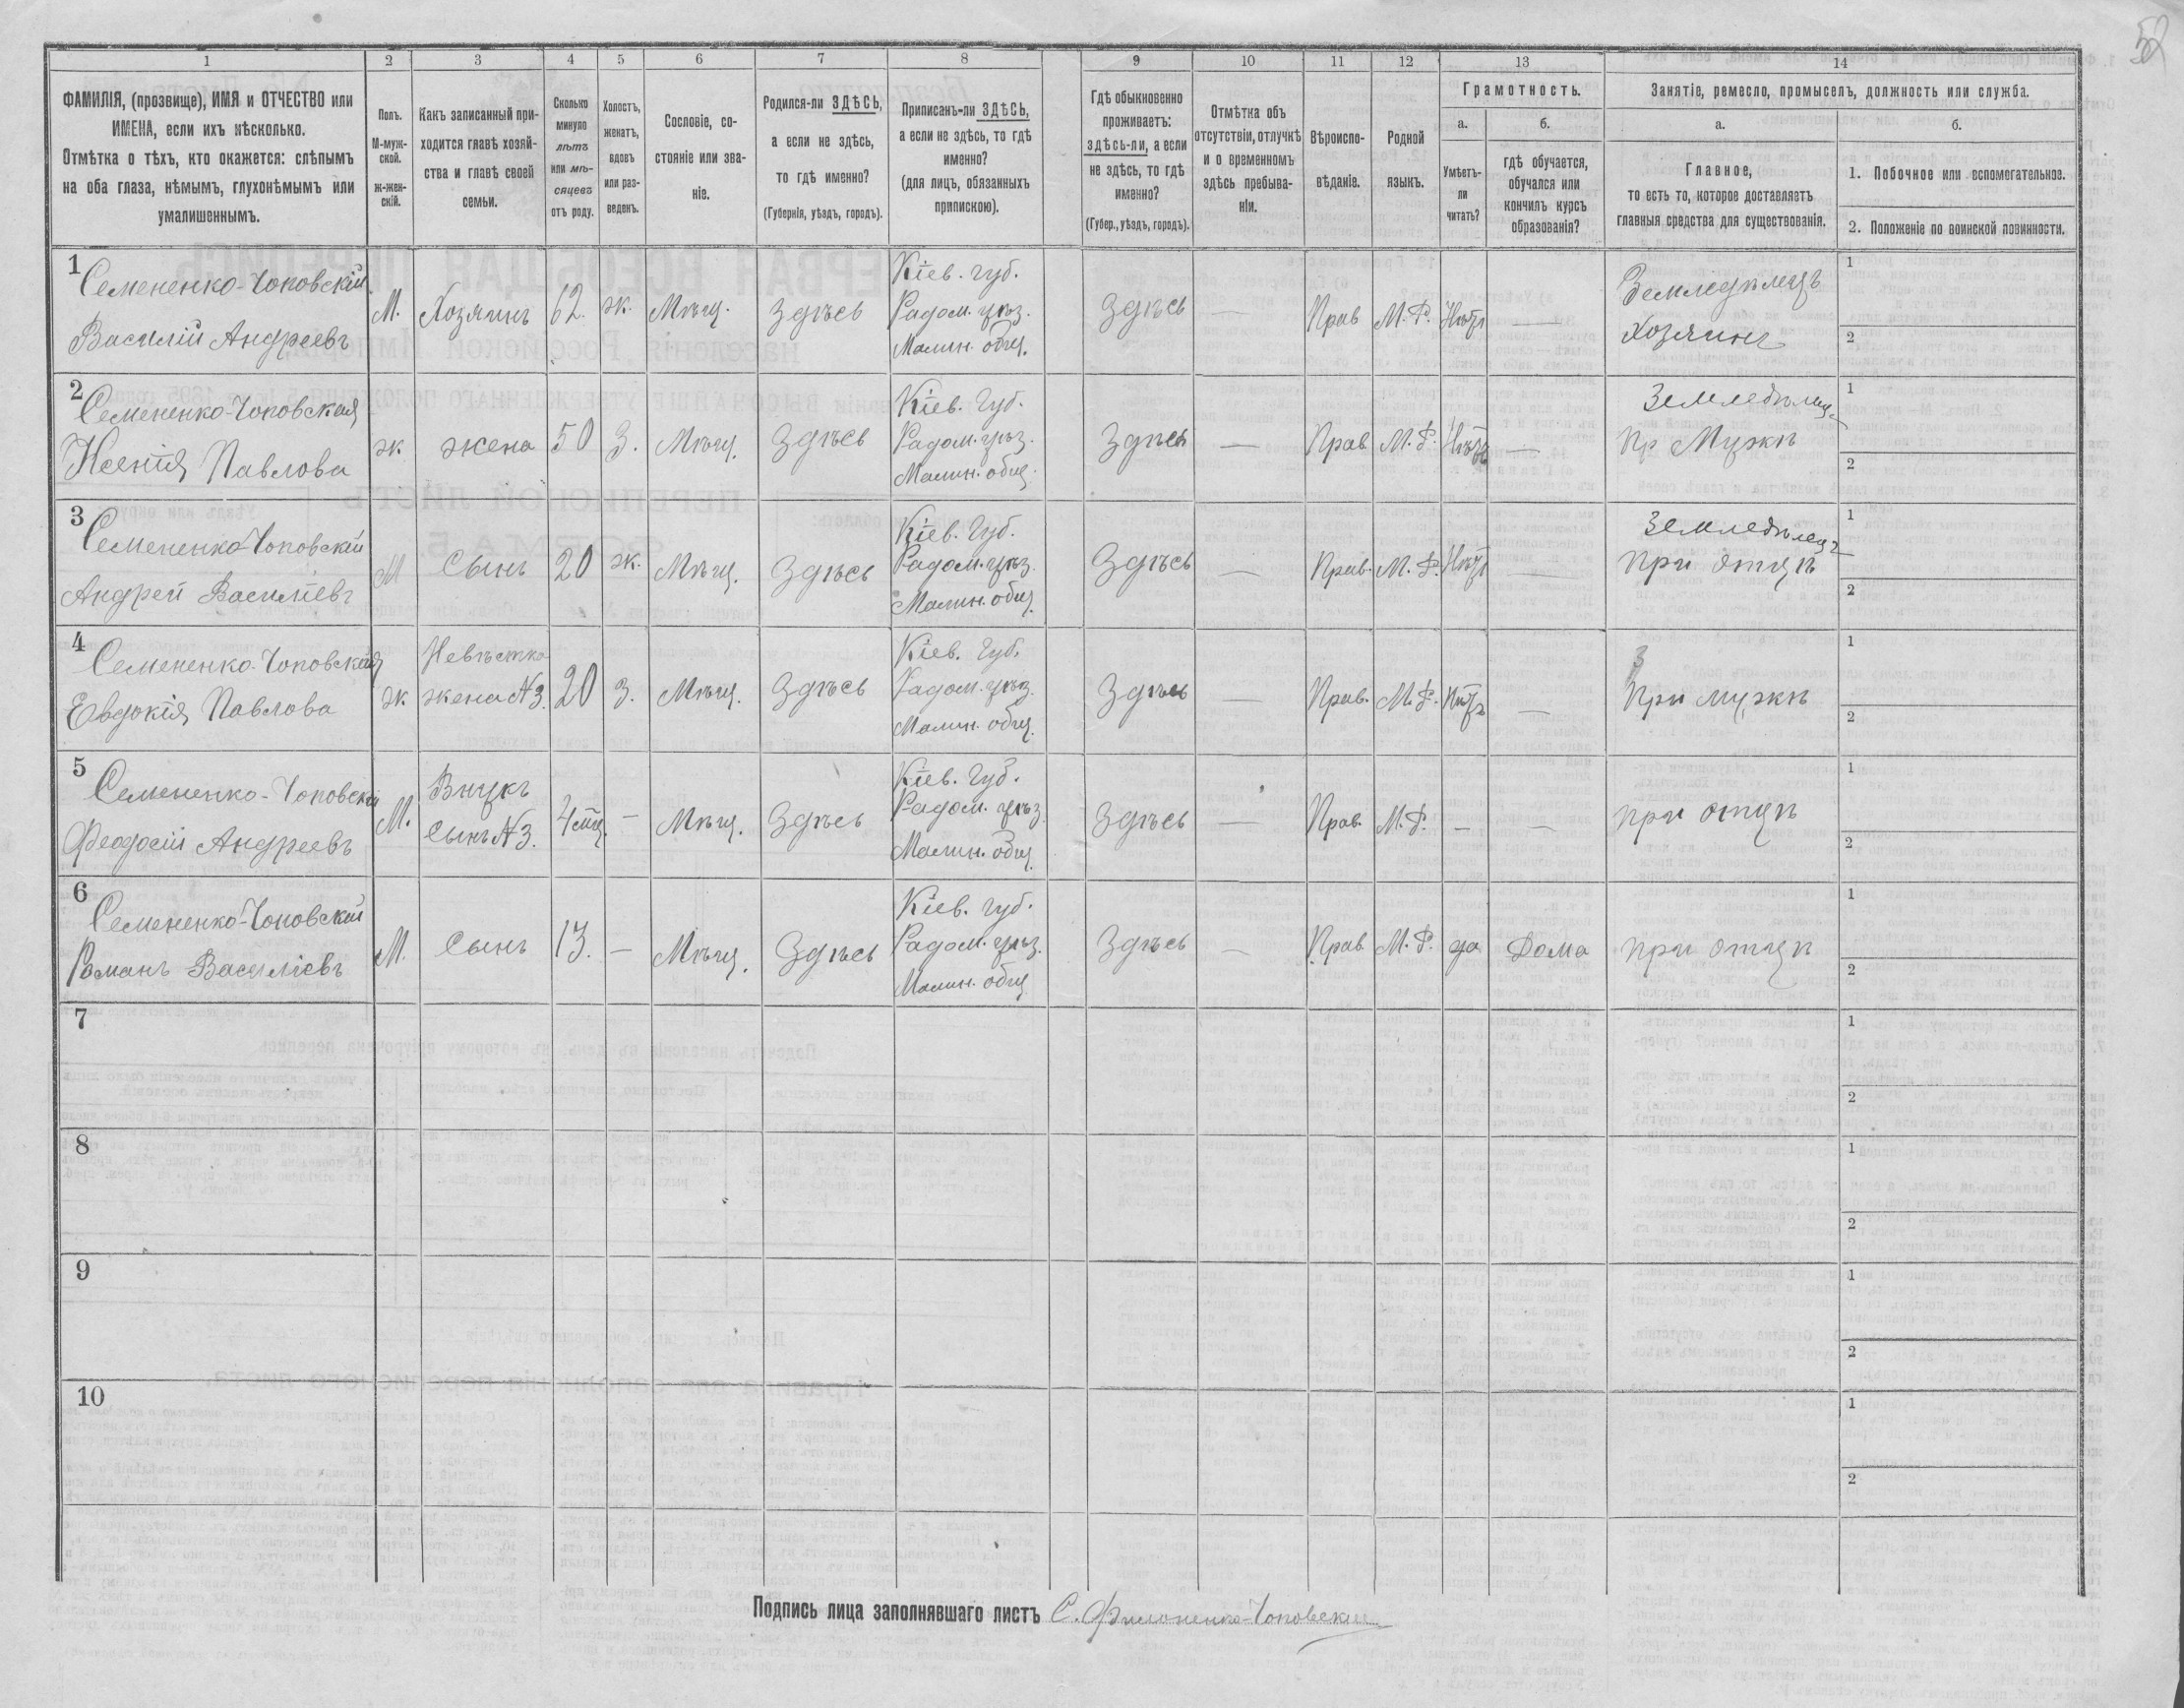 52
1 2 3 4 5 6 7 8 9 10 11 12 13 14
ФАМИЛІЯ, (прозвище), ИМЯ и ОТЧЕСТВО или
ИМЕНА, если ихъ нѣсколько.
Отмѣтка о тѣхъ, кто окажется: слѣпымъ
на оба глаза, нѣмымъ, глухонѣмымъ или
умалишеннымъ.
Полъ.
М-муж-
ской.
ж-жен-
скій.
Какъ записанный при-
ходится главѣ хозяй-
ства и главѣ своей
семьи.
Сколько
минуло
лѣтъ
или мѣ-
сяцевъ
отъ роду.
Холостъ,
женатъ,
вдовъ
или раз-
веденъ.
Сословіе, со-
стояніе или зва-
ніе.
Родился-ли ЗДѢСЬ,
а если не здѣсь,
то гдѣ именно?
(Губернія, уѣздъ, городъ).
Приписанъ-ли ЗДѢСЬ,
а если не здѣсь, то гдѣ
именно?
(для лицъ, обязанныхъ
припискою).
Гдѣ обыкновенно
проживаетъ:
здѣсь-ли, а если
не здѣсь, то гдѣ
именно?
(Губер., уѣздъ, городъ).
Отмѣтка объ
отсутствіи, отлучкѣ
и о временномъ
здѣсь пребыва-
ніи.
Вѣроиспо-
вѣданіе.
Родной
языкъ.
Грамотность.
а.
Умѣетъ-
ли
читать?
б.
гдѣ обучается,
обучался или
кончилъ курсъ
образованія?
Занятіе, ремесло, промыселъ, должность или служба.
а.
Главное,
то есть то, которое доставляетъ
главныя средства для существованія.
б.
1. Побочное или вспомогательное.
2. Положеніе по воинской повинности.
1
Семененко-Чоповскій
Василій Андреевъ
М.
Хозяинъ
62.
ж.
Мѣщ.
Здѣсь
Кіев. губ.
Радом. уѣз.
Малин. общ.
Здѣсь
—
Прав
М. Р.
Нѣтъ
—
Земледѣлецъ
Хозяинъ
1
2
2
Семененко-Чоповская
Ксенія Павлова
ж.
жена
50
З.
Мѣщ.
Здѣсь
Кіев. Губ.
Радом. уѣз.
Малин. общ.
Здѣсь
—
Прав
М. Р.
Нѣтъ
—
Земледѣлец.
Пр Мужѣ
1
2
3
Семененко-Чоповскій
Андрей Василіевъ
М
Сынъ
20
ж.
Мѣщ.
Здѣсь
Кіев. Губ.
Радом. уѣз.
Малин. общ.
Здѣсь
—
Прав.
М. Р.
Нѣтъ
—
Земледѣлецъ
При отцѣ
1
2
4
Семененко-Чоповская
Евдокія Павлова
ж.
Невѣстка
жена N3.
20
З.
Мѣщ.
Здѣсь
Кіев. Губ.
Радом. уѣз.
Малин. общ.
Здѣсь
—
Прав.
М. Р.
Нѣтъ
—
З
При мужѣ
1
2
5
Семененко-Чоповскій
Феодосій Андреевъ
М.
Внукъ
Сынъ N3.
4 мѣц.
—
Мѣщ.
Здѣсь
Кіев. Губ.
Радом. уѣз.
Малин. общ.
Здѣсь
—
Прав.
М. Р.
—
—
при отцѣ
1
2
6
Семененко-Чоповскій
Романъ Василіевъ
М.
Сынъ
13.
—
Мѣщ.
Здѣсь
Кіев. губ.
Радом. уѣз.
Малин. общ
Здѣсь
—
Прав
М. Р.
да
Дома
при отцѣ
1
2
7
1
2
8
1
2
9
1
2
10
1
2
Подпись лица заполнявшаго листъ С. Филоненко-Чоповскій